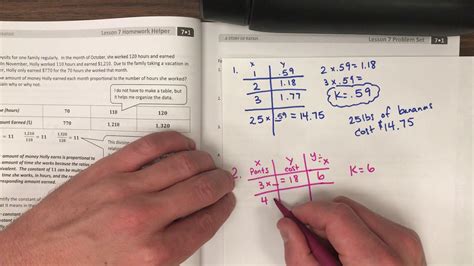 Lesson 7 Homework Helper 7•1
ysits for one family regularly. In the month of October, she worked 120 hours and earned
November, Holly worked 110 hours and earned $1,210. Due to the family taking a vacation in
Holly only earned $770 for the 70 hours she worked that month.
amount of money Holly earned each month proportional to the number of hours she worked?
I do not have to make a table, but
it helps me organize the data.
(hours) 70 110 120
Earned ($) 770 1,210 1,320
= 11
amount of money Holly earns is proportional to
amount of time she works because the ratios are
equivalent. The constant of 11 can be multiplied
time she works, in hours, and the result is
responding amount earned.
A STORY OF RATIOS Lesson 7 Problem Set 7•1
x y
1. 1 .59
2 1.18
3 1.77
25 x .59 = 14.75
2 x .59 = 1.18
3 x .59 =
K = .59
25 lbs of bananas
cost $14.75
2. x y y÷x
Pants cost
3x = 18 6
4
K = 6